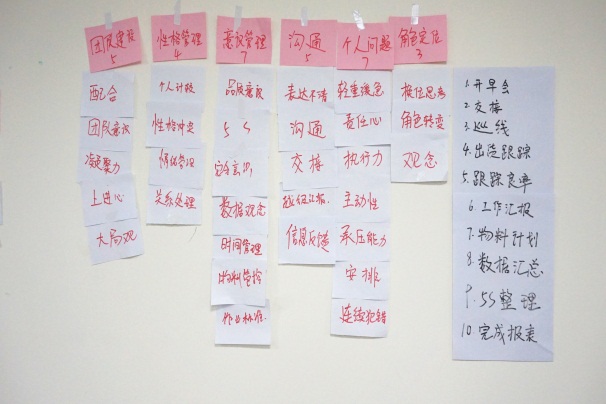 团队建设
5
配合
团队意识
凝聚力
上进心
大局观
性格管理
4
个人计较
性格冲突
情绪管理
关系处理
意识管理
7
品质意识
5S
安全意识
数据观念
时间管理
物料管控
作业标准
沟通
5
表达不清
沟通
交接
越级汇报
信息反馈
个人问题
7
轻重缓急
责任心
执行力
主动性
承压能力
安排
连续犯错
角色定位
3
换位思考
角色转变
观念
1.开早会
2.交接
3.巡线
4.出货跟踪
5.跟踪良率
6.工作汇报
7.物料计划
8.数据汇总
9.5S整理
10.完成报表